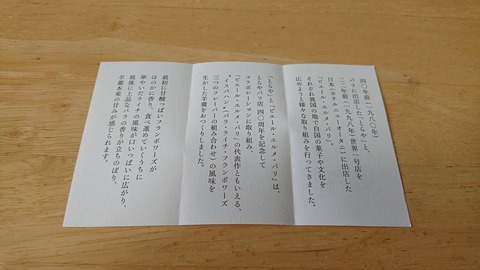 四〇年前(一九八〇年)
パリに出店した「とらや」と、
二二年前(一九九八年)世界一号店を
日本(ホテルニューオータニ)に出店した
「ピエール・エルメ・パリ」。
それぞれ異国の地で自国の菓子や文化を
広めようと様々な取り組みを行ってきました。
「とらや」と「ピエール・エルメ・パリ」は、
とらやパリ店四〇周年を記念して
コラボレーションに取り組み
「ピエール・エルメ・パリ」の代表作ともいえる、
“イスパハン”(バラ・ライチ・フランボワーズ
三つのフレーバーの組み合わせ)の風味を
生かした羊羹をおつくりしました。
最初に甘酸っぱいフランボワーズが
ほのかに香り、食べ進めていくうちに
華やいだライチの風味が口いっぱいに広がり、
最後に上品なバラの香りが立ちのぼり、
羊羹本来の甘みが感じられます。